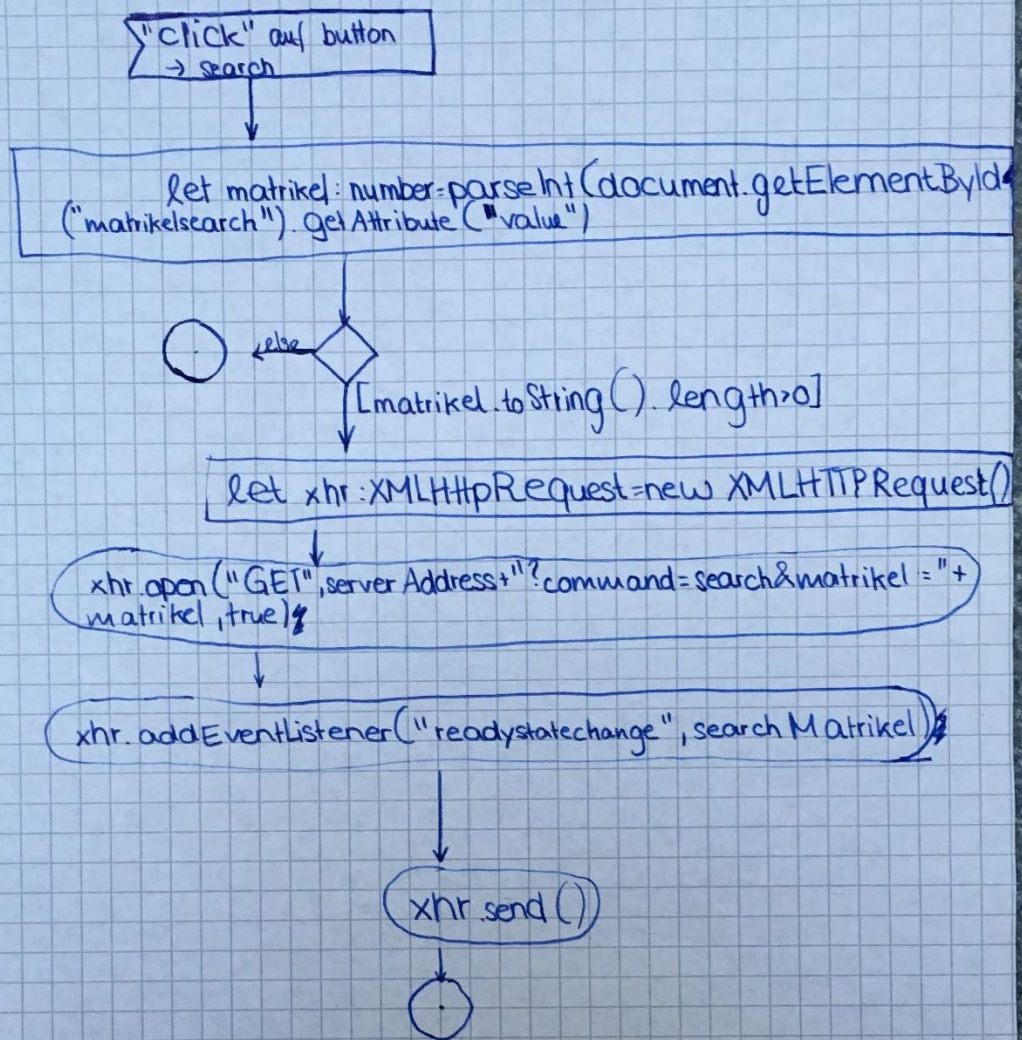 "click" auf button
→ search
let matrikel: number=parseInt(document.getElementById
("matrikelsearch").getAttribute("value")
else
[matrikel.toString().length>0]
let xhr:XMLHttpRequest=new XMLHTTPRequest()
xhr.open("GET",serverAddress+"?command=search&matrikel="+
matrikel,true)
xhr.addEventListener("readystatechange",searchMatrikel)
xhr.send()